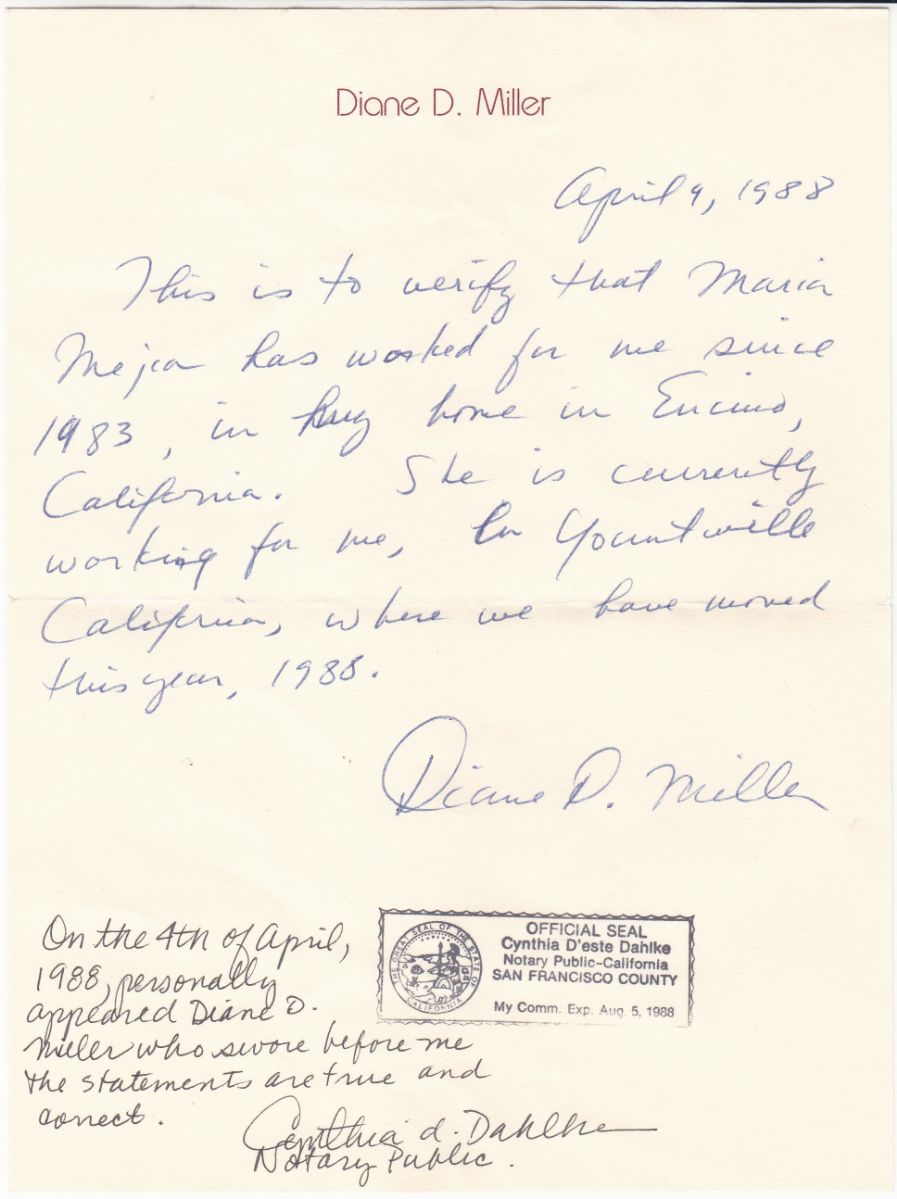 Diane D. Miller
April 4, 1988
This is to verify that Maria
Mejia has worked for me since
1983, in my home in Encino,
California. She is currently
working for me, in Yountville
California, where we have moved
this year, 1988.
Diane D. Miller
On the 4th of April,
1988, personally
appeared Diane D.
Miller who swore before me
the statements are true and
correct.
Cynthia d. Dahlke
Notary Public.
THE GREAT SEAL OF THE STATE OF CALIFORNIA
OFFICIAL SEAL
Cynthia D'este Dahlke
Notary Public-California
SAN FRANCISCO COUNTY
My Comm. Exp. Aug. 5, 1988